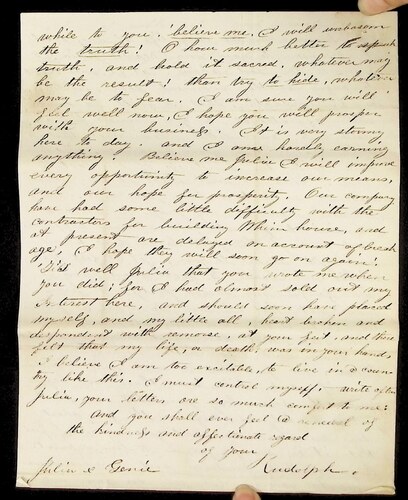 while to you. believe me, I will unbosom
the truth! O how much better to speak
truth, and hold it sacred, whatever may
be the result! than try to hide, whatever
may be to fear. I am sure you will
feel well now, I hope you will prosper
with your business. It is very stormy
here to day. and I am hardly earning
anything. Believe me Julia I will improve
every opportunity to increase our means,
and our hope for prosperity. Our company
have had some little difficulty with the
contractors for building Whim house, and
at present are delayed on account of break
age, I hope they will soon go on again.
'Tis well Julia that you wrote me when
you did, for I had almost sold out my
interest here, and should soon have placed
myself, and my little all, heart broken and
despondent with remorse, at your feet, and there
felt that my life, or death, was in your hand,
I believe I am too excitable, to live in a coun
try like this. I must control myself. write often
Julia, your letters are so much comfort to me:
and you shall ever feel a renewal of
the kindness and affectionate regard
of your
Julia & Genie Rudolph.